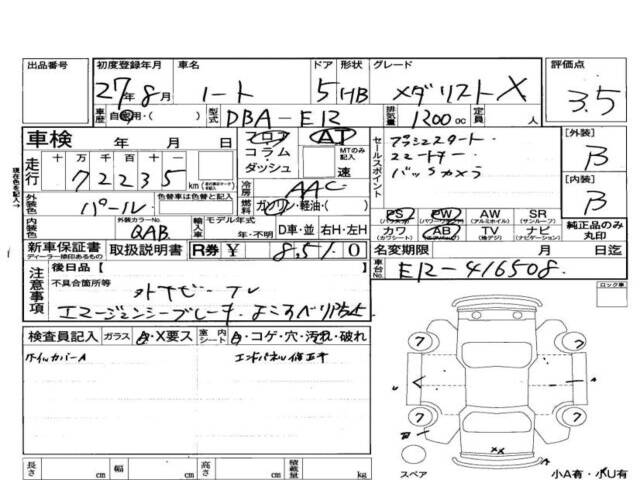 出品番号 初度登録年月 車名 ドア 形状 グレード 評価点
27年 8月 ノート 5 HB メダリスト X 3.5
車歴 自家用・( ) 型式 DBA-E12 排気量 1200cc 定員 人
車検 年 月 日 フロア AT
コラム・ダッシュ MTのみ記入 速
走行 十 万 千 百 十 一
72235 km
冷房 AAC
セールスポイント プッシュスタート
バックカメラ
[外装] B
[内装] B
外装色 パール 色替車は色替色を記入 燃料 ガソリン・軽油・( )
PS (パワステ) PW (パワーウィンドウ) AW (アルミホイル) SR (サンルーフ)
カワ (カワシート) AB (エアバッグ) TV (純デジ) ナビ
純正品のみ丸印
内装色 外装カラーNo. QAB 輸入車 モデル年式 年・不明 D車・並 右H・左H
新車保証書 ディーラー捺印あるもの 取扱説明書 R券 ¥ 8,510 名変期限 月 日迄
注意事項 後日品[ ] 車台No. E12-416508
不具合箇所等
エマージェンシーブレーキ よこすべり防止
ロック車
検査員記入 ガラス A・X要ス 室内シート A・コゲ・穴・汚れ・破れ
ホイルカバーA エンドパネル修正キ
7 7
7 7
スペア 小A有・小U有
長さ cm 幅 cm 高さ cm 積載量 kg
現在色を記入→